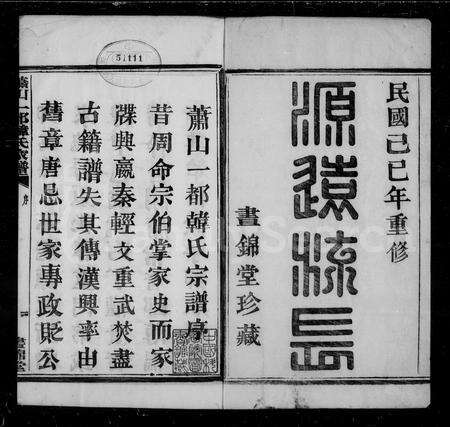 民國己巳年重修
源遠流長
晝錦堂珍藏
51111
蕭山一都韓氏宗譜序
昔周命宗伯掌家史而家
牒興嬴秦輕文重武焚盡
古籍譜失其傳漢興率由
舊章唐忌世家專政貶公
蕭山一都韓氏宗譜
序
一
晝錦堂